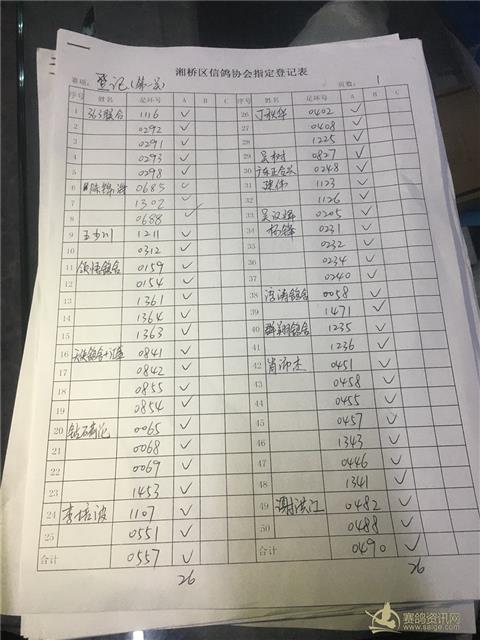 湘桥区信鸽协会指定登记表
赛项: 登记(第一关) 页数: 1
序号 姓名 足环号 A B C 序号 姓名 足环号 A B C
1 363联合 1116 ✓ 26 丁秋华 0402 ✓
2 0292 ✓ 27 0408 ✓
3 0291 ✓ 28 1225 ✓
4 0293 ✓ 29 吴树 0827 ✓
5 0298 ✓ 30 0248 ✓
6 0685 ✓ 31 建伟 1123 ✓
7 1302 ✓ 32 1126 ✓
8 0688 ✓ 33 吴汉辉 0205 ✓
9 1211 ✓ 34 杨锋 0231 ✓
10 0312 ✓ 35 0232 ✓
11 0159 ✓ 36 0234 ✓
12 0154 ✓ 37 0240 ✓
13 1361 ✓ 38 0058 ✓
14 1364 ✓ 39 1471 ✓
15 1363 ✓ 40 群翔鸽舍 1235 ✓
16 0841 ✓ 41 1236 ✓
17 0842 ✓ 42 肖沛杰 0451 ✓
18 0855 ✓ 43 0458 ✓
19 0854 ✓ 44 0455 ✓
20 0065 ✓ 45 0457 ✓
21 0068 ✓ 46 1343 ✓
22 0069 ✓ 47 0446 ✓
23 1453 ✓ 48 1341 ✓
24 李培波 1107 ✓ 49 谢洪江 0482 ✓
25 0551 ✓ 50 0488 ✓
合计 0557 ✓ 合计 0490 ✓
26 26
赛鸽资讯网
www.saige.com